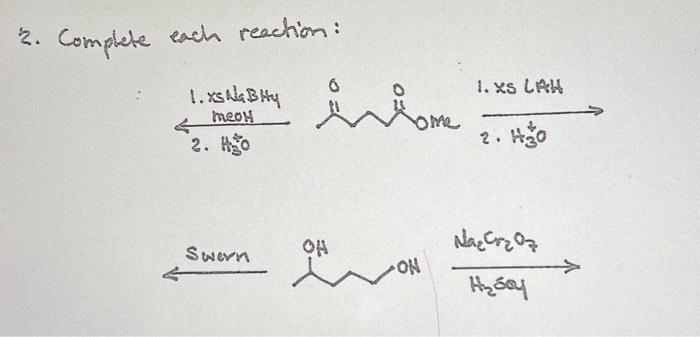 2. Complete each reaction:
1. xs NaBH4
MeOH
2. H3O+
O
O
OMe
1. xs LAH
2. H3O+
Swern
OH
OH
Na2Cr2O7
H2SO4